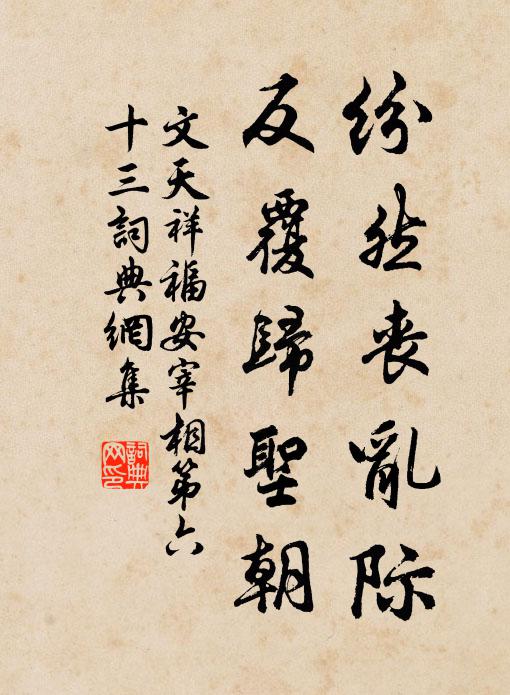 纷然丧亂际
反覆歸聖朝
文天祥福安宰相第六
十三詞典網集
詞典网印